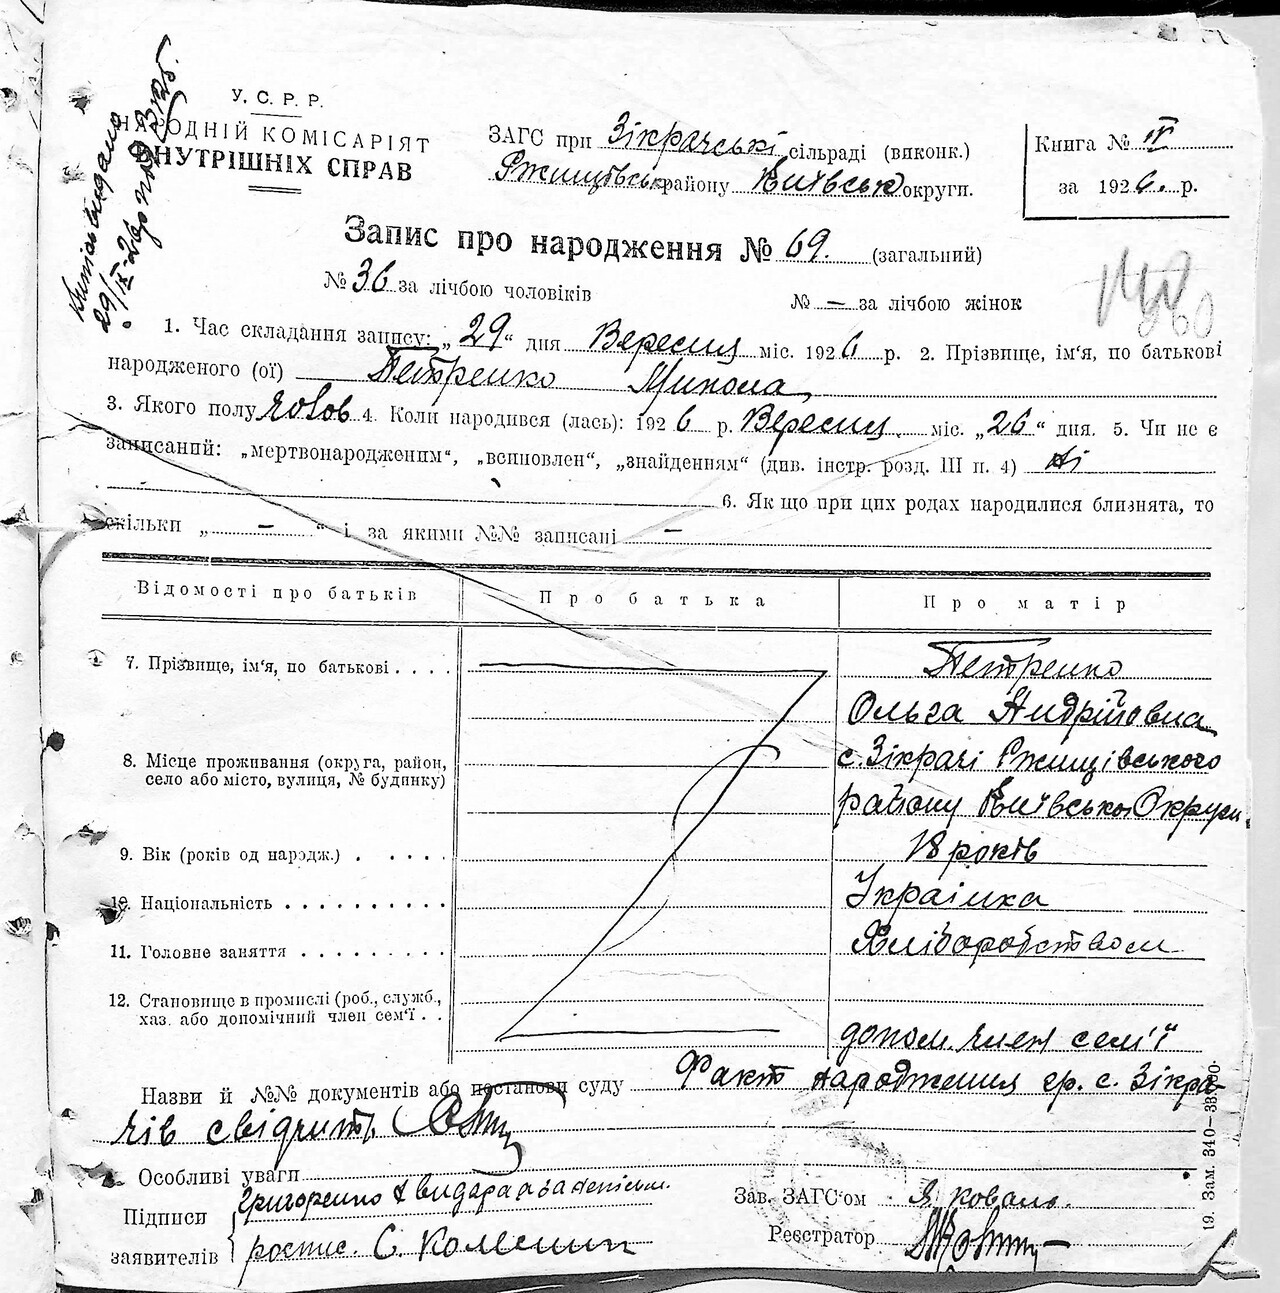 Виписъ видано
29/IX-26р
У. С. Р. Р.
НАРОДНІЙ КОМІСАРІЯТ
ВНУТРІШНІХ СПРАВ
ЗАГС при Зікрачські сільраді (виконк.)
Ржищівськ району Київськ округи.
Книга № IV
за 1926. р.
Запис про народження № 69. (загальний)
№ 36 за лічбою чоловіків № — за лічбою жінок
1. Час складання запису: „29“ дня Вересня міс. 1926 р. 2. Прізвище, ім'я, по батькові
народженого (ої) Петренко Микола
3. Якого полу чолов 4. Коли народився (лась): 1926 р. Вересня міс. „26“ дня. 5. Чи не є
записаний: „мертвонародженим“, „всиновлен“, „знайденням“ (див. інстр. розд. III п. 4) Ні
6. Як що при цих родах народилися близнята, то
скільки „ — “ і за якими №№ записані —
Відомості про батьків Про батька Про матір
7. Прізвище, ім'я, по батькові . . . . Петренко
Ольга Андрійовна
8. Місце проживання (округа, район, село або місто, вулиця, № будинку) с. Зікрачі Ржищівського
району Київськоі Округи.
9. Вік (років од народж.) . . . . . 18 років
10. Національність . . . . . . . . . . Украінка
11. Головне заняття . . . . . . . . . Хліборобством
12. Становище в промислі (роб., служб.,
хаз. або допомічний член сем'ї . . допом. член сем'ї
Назви й №№ документів або постанови суду Факт народження гр. с. Зікра-
чів свідчить
Особливі уваги
Підписи
заявителів
Григоренко
роспис. С. Колесник
Зав. ЗАГС'ом Я. Коваль.
Реєстратор
19. Зам. 340—33000.